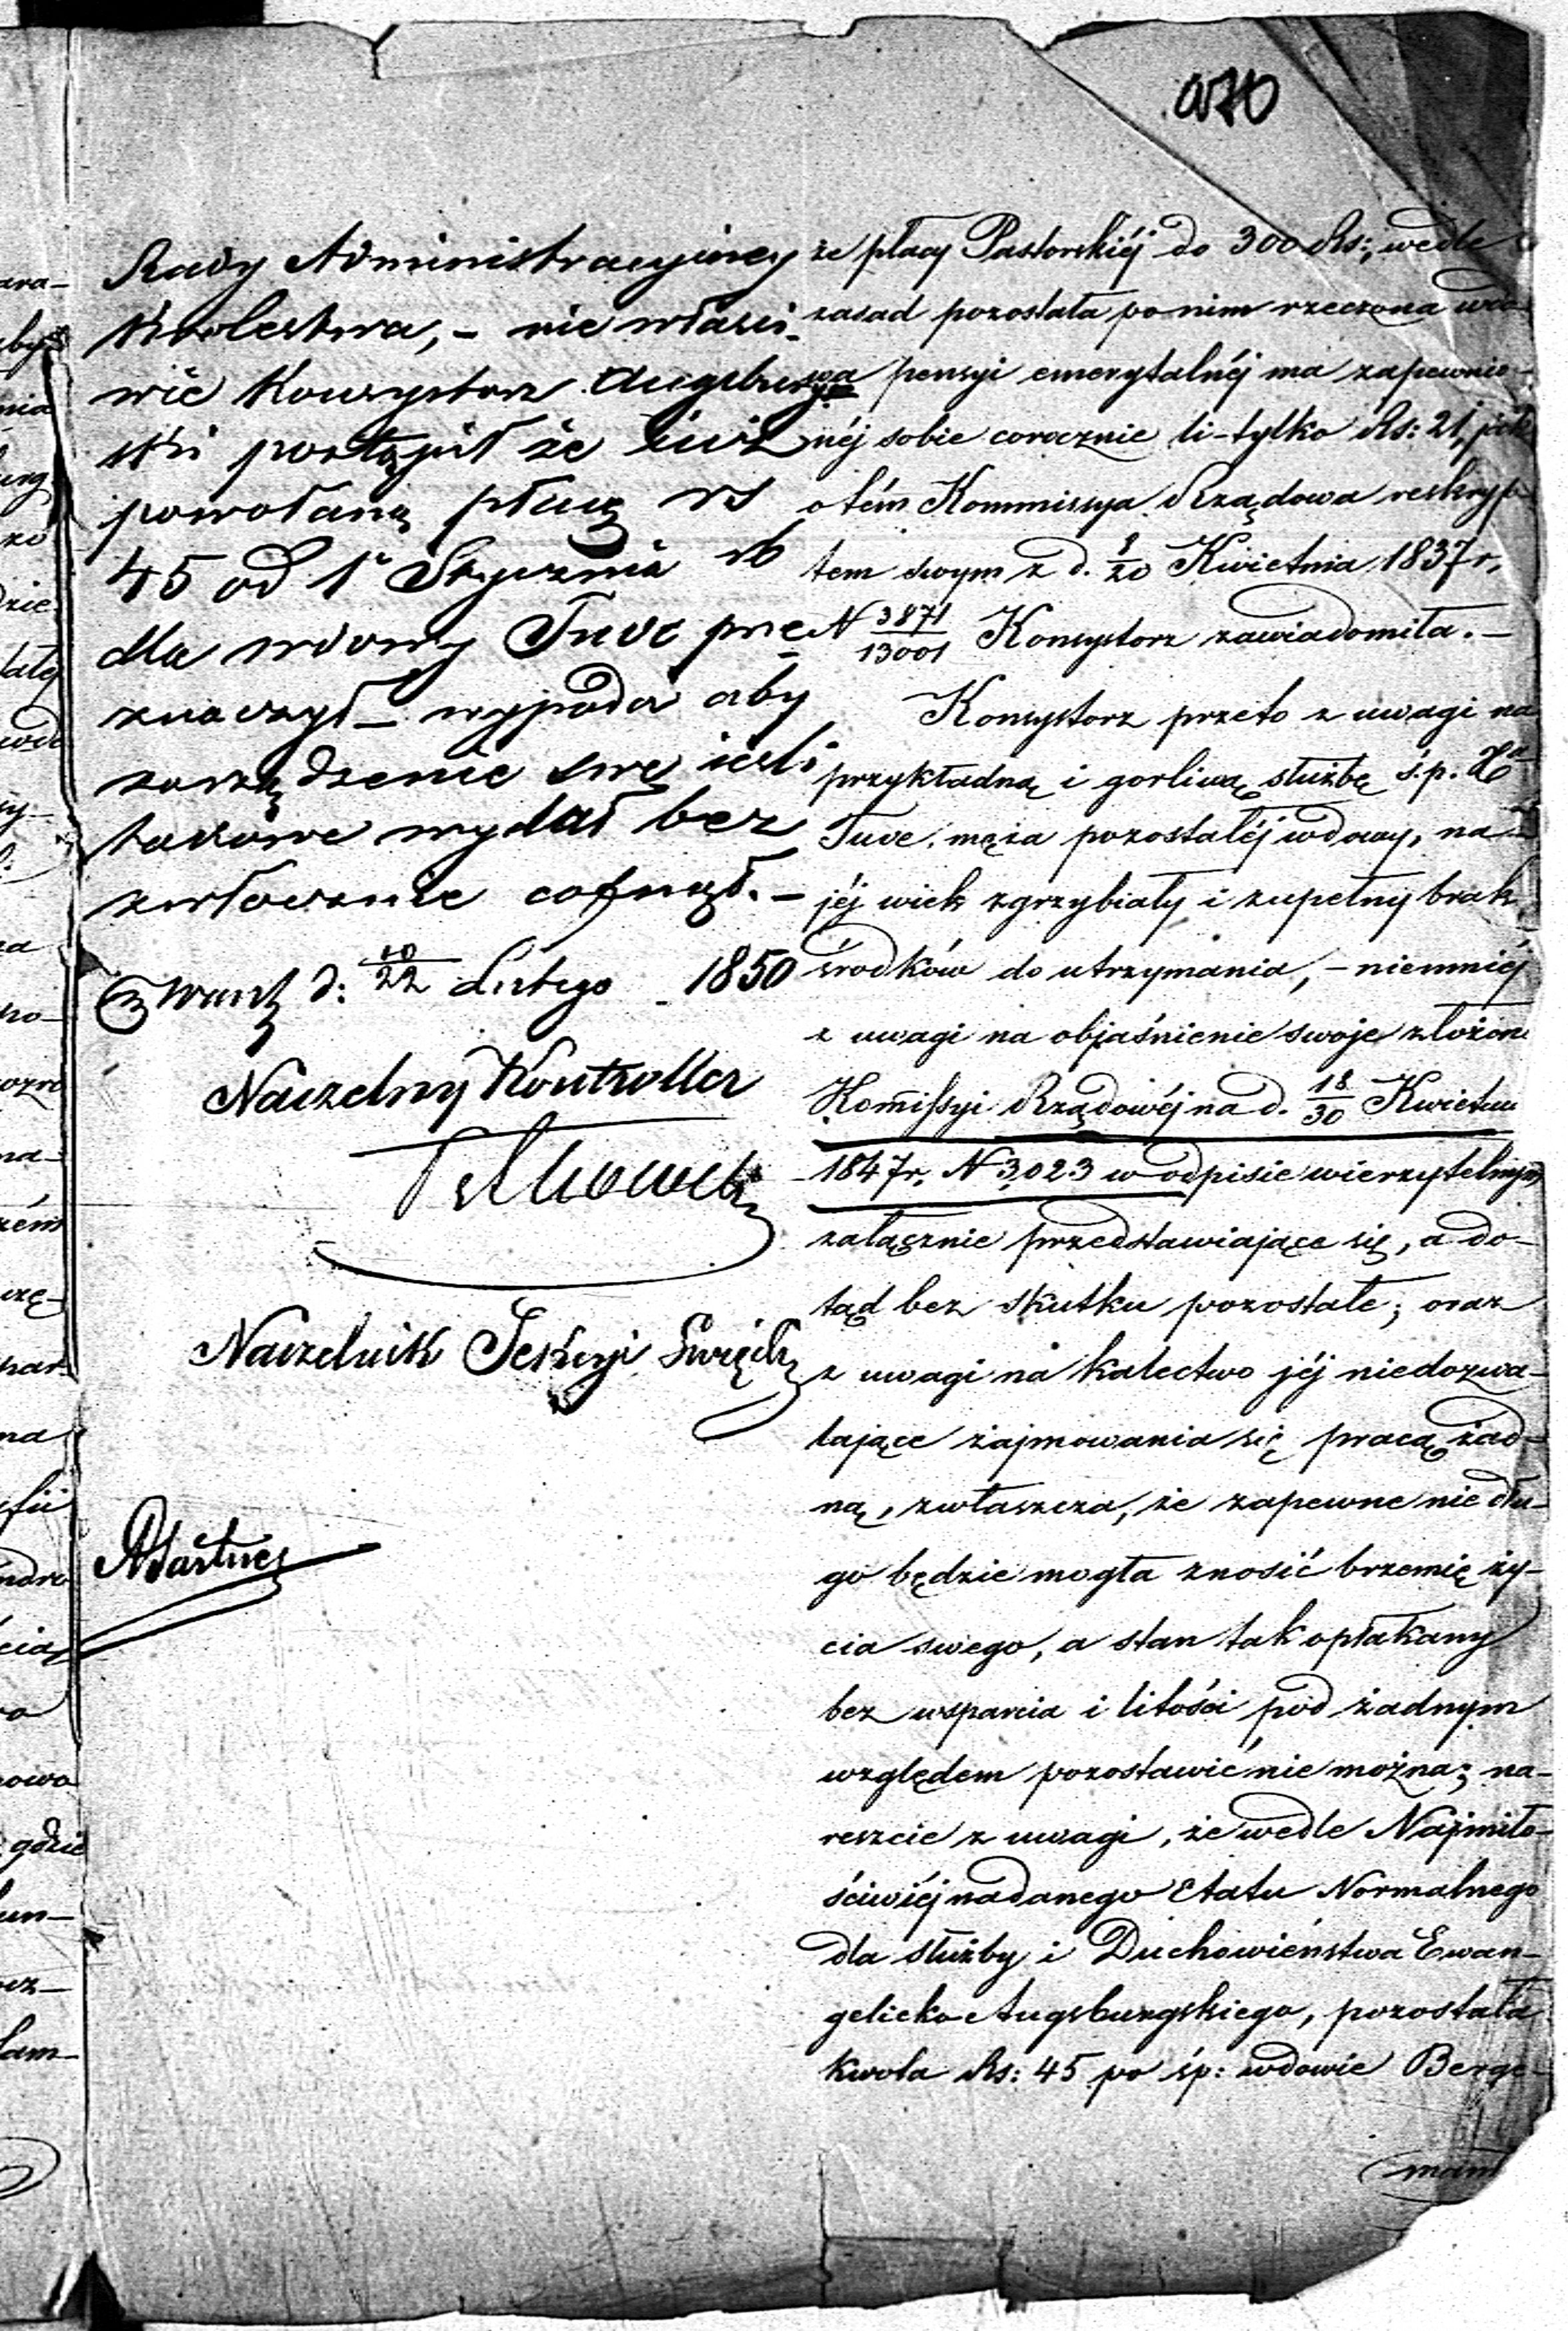 Rady Administracyjney
Królestwa, – nie właści-
wie Konsystorz Augsburg-
ski postąpił że iuż
powołaną płacę rs
45 od 1º Stycznia rb
dla wdowy Tuve prze-
znaczył – wypada aby
zarządzenie swe ieśli
takowe wydał bez
zwłocznie cofnął. –
Warsz d: 10/22 Lutego 1850
Naczelny Kontroller
Naczelnik Sekcyi
że płacy Pastorskiéj do 300 Rs:, wedle
zasad pozostała po nim rzeczona wdo-
wa pensyi emerytalnéj ma zapewnio-
néj sobie corocznie li-tylko Rs: 21, jak
o tém Kommissya Rządowa reskryp-
tem swym z d. 8/20 Kwietnia 1837 r,
N 3871/13001 Konsystorz zawiadomiła. –
Konsystorz przeto z uwagi na
przykładną i gorliwą służbę ś.p. Xa
Tuve, męża pozostałéj wdowy, na
jéj wiek zgrzybiały i zupełny brak
środków do utrzymania, – niemniéj
z uwagi na objaśnienie swoje złożone
Komissyi Rządowéj na d. 18/30 Kwietnia
1847 r, N 3,023 w odpisie wierzytelnym
załącznie przedstawiające się, a do-
tąd bez skutku pozostałe; oraz
z uwagi na kalectwo jéj niedozwa-
lające zajmowania się pracą żad-
ną, zwłaszcza, że zapewne nie dłu-
go będzie mogła znosić brzemię ży-
cia swego, a stan tak opłakany
bez wsparcia i litości pod żadnym
względem pozostawić nie można; na-
reszcie z uwagi, że wedle Najmiło-
ściwiéj nadanego Etatu Normalnego
dla służby i Duchowieństwa Ewan-
gelicko Augsburgskiego, pozostała
kwota Rs: 45 po śp: wdowie Berge-
mann